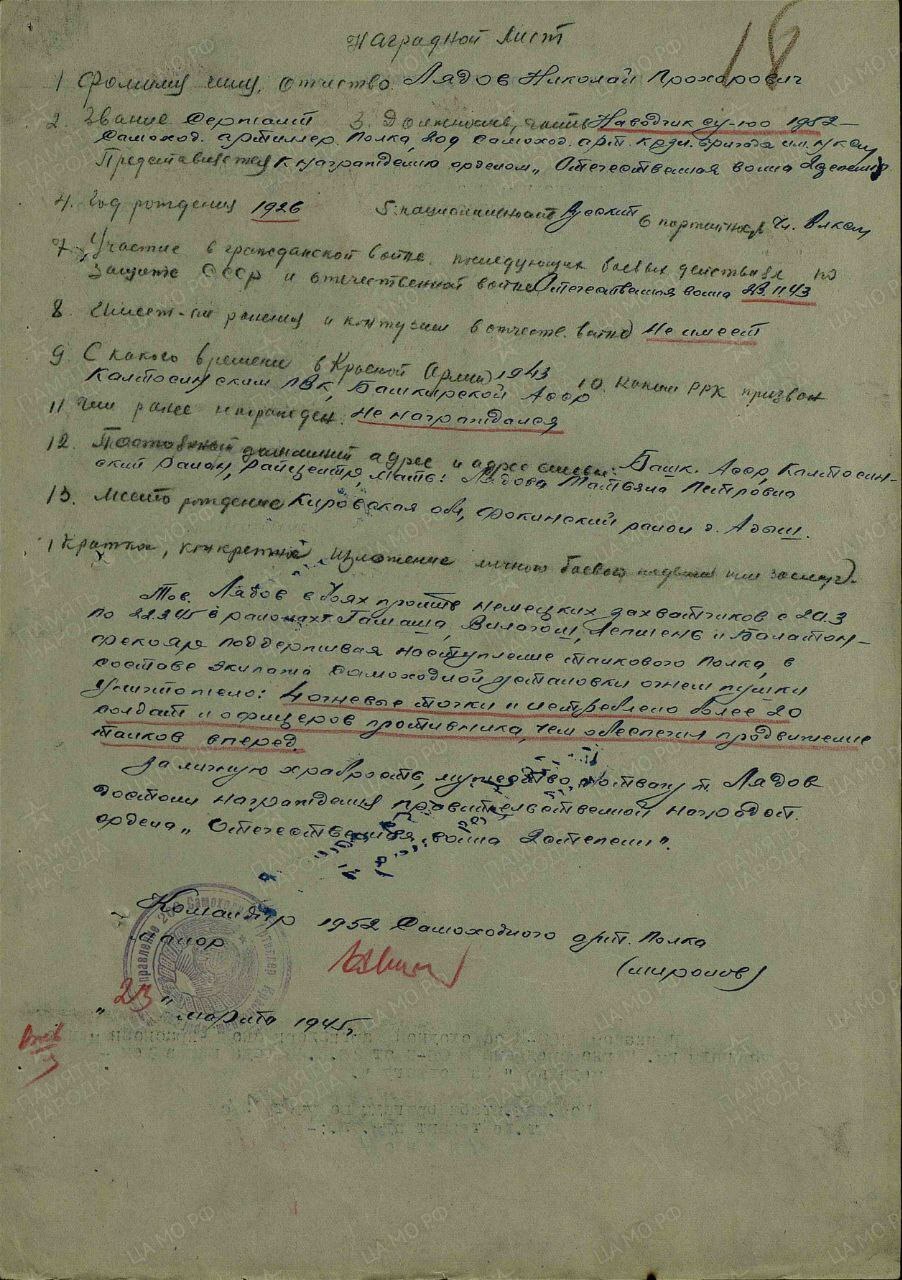 18
Наградной Лист
1 Фамилия имя, отчество Лядов Николай Прохорович
2. Звание Сержант 3. Должность, часть Наводчик су-100 1952-
Самоход. артиллер. Полка, 208 самоход. арт. бригада
Представляется к награждению орденом „Отечественная война 2 степени
4. год рождения 1926 5. национальность Русский 6 партийность чл. ВЛКСМ
7. Участие в гражданской войне, последующих боевых действиях по
защите СССР и отечественной войне Отечественная война 23.11.43
8. Имеет-ли ранения и контузии в отечеств. войне Не имеет
9. С какого времени в Красной Армии 1943 10. каким РВК призван
Калтосинским РВК, Башкирской АССР
11. Чем ранее награжден. Не награждался
12. Постоянный домашний адрес и адрес семьи: Башк. АССР, Калтосин-
ский район, райцентр, мать: Лядова Татьяна Петровна
13. Место рождения Кировская обл, Фокинский район д. Адыш.
1 Краткое, конкретное изложение личного боевого подвига или заслуг.
Тов. Лядов в боях против немецких захватчиков с 20.3
по 22.3.45 в районах: Гамаша, Лепшень и Балатон-
фекояре поддерживая наступление танкового полка, в
составе экипажа самоходной установки огнем пушки
уничтожено: 4 огневые точки и истреблено более 20
солдат и офицеров противника, чем обеспечил продвижение
танков вперед.
За личную храбрость, мужество и отвагу т. Лядов
достоин награждения правительственной наградой
ордена „Отечественная война 2 степени".
Командир 1952 Самоходного арт. Полка
майор (миронов)
„23" марта 1945г.
ПАМЯТЬ НАРОДА
ЦА МО РФ